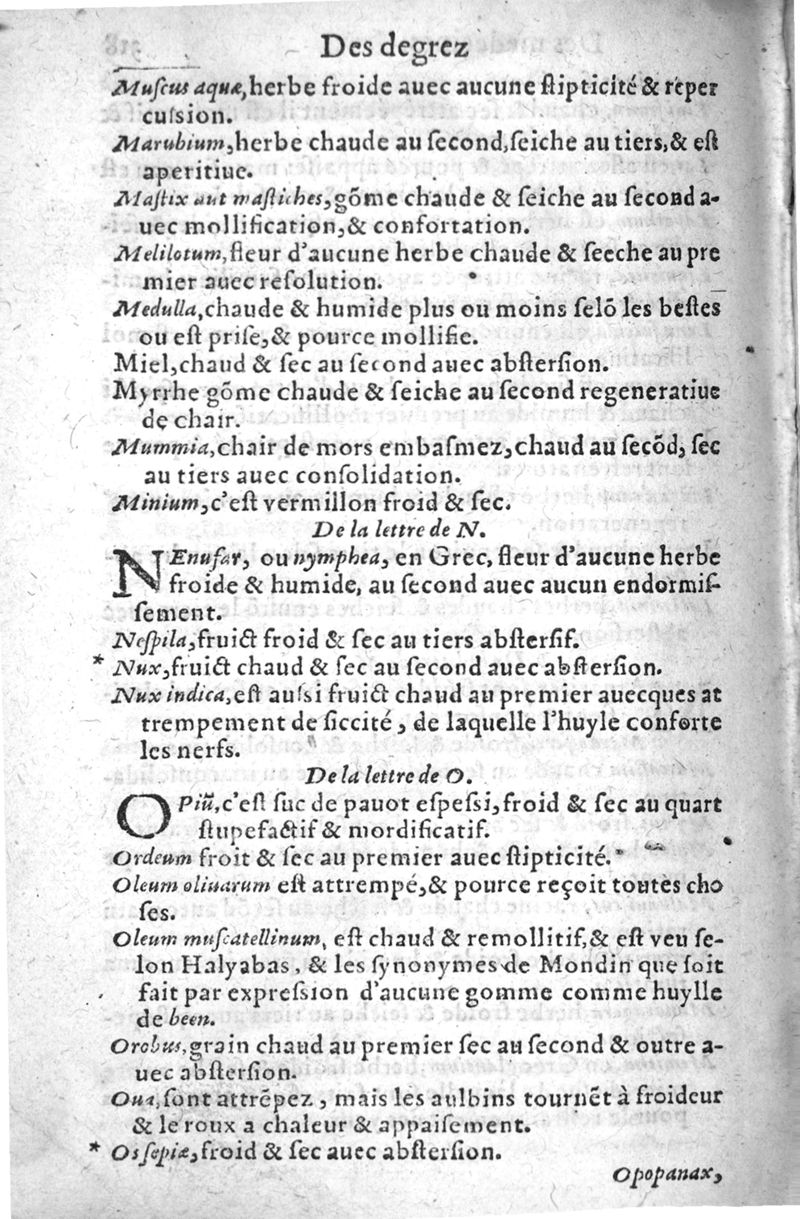 Des degrez
Muſcus aquæ, herbe froide auec aucune ſtipticité & reper
cuſsion.
Marubium, herbe chaude au ſecond, ſeiche au tiers, & eſt
aperitiue.
Maſtix aut maſtiches, gõme chaude & ſeiche au ſecond a-
uec mollification, & confortation.
Melilotum, fleur d'aucune herbe chaude & ſeeche au pre
mier auec reſolution.
Medulla, chaude & humide plus ou moins ſelõ les beſtes
ou eſt priſe, & pource mollifie.
Miel, chaud & ſec au ſecond auec abſterſion.
Myrrhe gõme chaude & ſeiche au ſecond regeneratiue
de chair.
Mummia, chair de mors embaſmez, chaud au ſecõd, ſec
au tiers auec conſolidation.
Minium, c'eſt vermillon froid & ſec.
De la lettre de N.
NEnufar, ou nymphea, en Grec, fleur d'aucune herbe
froide & humide, au ſecond auec aucun endormiſ-
ſement.
Neſpila, fruict froid & ſec au tiers abſterſif.
* Nux, fruict chaud & ſec au ſecond auec abſterſion.
Nux indica, eſt auſsi fruict chaud au premier auecques at
trempement de ſiccité, de laquelle l'huyle conforte
les nerfs.
De la lettre de O.
OPiũ, c'eſt ſuc de pauot eſpeſsi, froid & ſec au quart
ſtupefactif & mordificatif.
Ordeum froit & ſec au premier auec ſtipticité.
Oleum oliuarum eſt attrempé, & pource reçoit toutes cho
ſes.
Oleum muſcatellinum, eſt chaud & remollitif, & eſt veu ſe-
lon Halyabas, & les ſynonymes de Mondin que ſoit
fait par expreſsion d'aucune gomme comme huylle
de been.
Orobus, grain chaud au premier ſec au ſecond & outre a-
uec abſterſion.
Oua, ſont attrẽpez, mais les aulbins tournẽt à froideur
& le roux a chaleur & appaiſement.
* Os ſepiæ, froid & ſec auec abſterſion.
Opopanax,